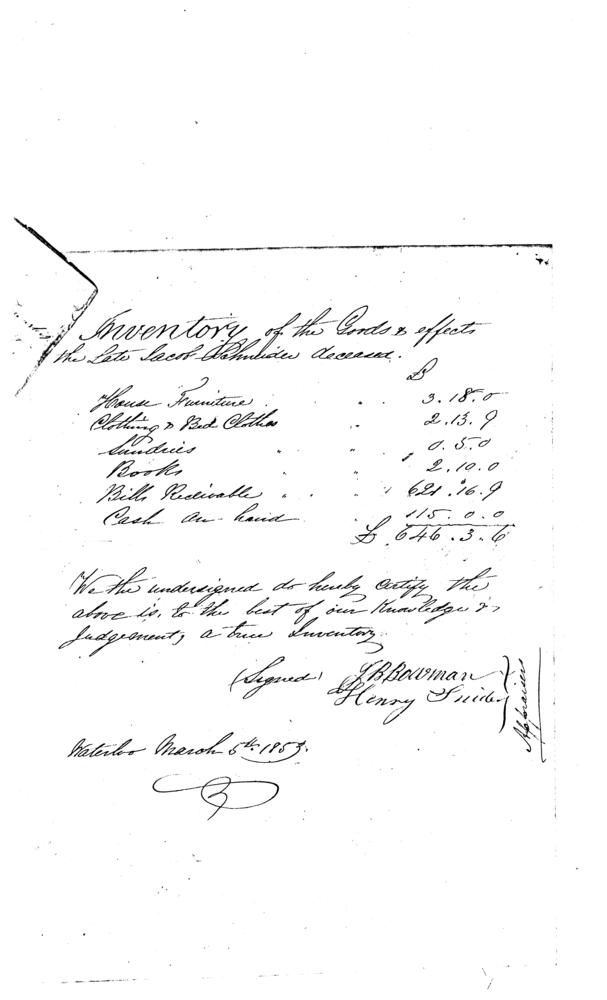 Inventory of the Goods & effects
the Late Jacob Schneider deceased.
£
House Furniture " " 3.18.0
Clothing & Bed Clothes " 2.13.9
Sundries " " 0.5.0
Books " " 2.10.0
Bills Receivable " " 621.16.9
Cash on hand " 115.0.0
£ 646.3.6
We the undersigned do hereby certify the
above is, to the best of our Knowledge &
Judgement, a true Inventory
(Signed) J B Bowman
Henry Snider
Appraisers
Waterloo March 5th 1853.